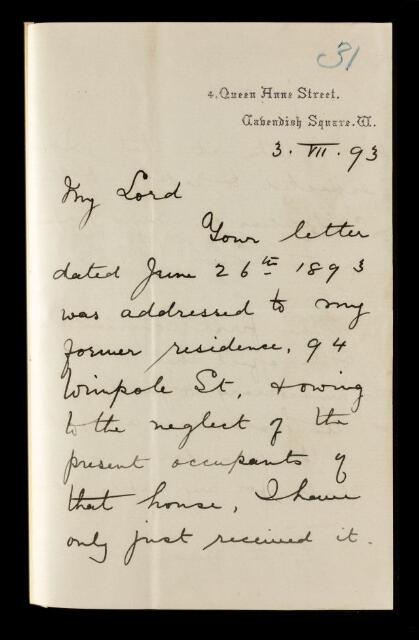 31
4. Queen Anne Street.
Cavendish Square. W.
3. VII. 93
My Lord
Your letter
dated June 26th 1893
was addressed to my
former residence, 94
Wimpole St, & owing
to the neglect of the
present occupants of
that house, I have
only just received it.